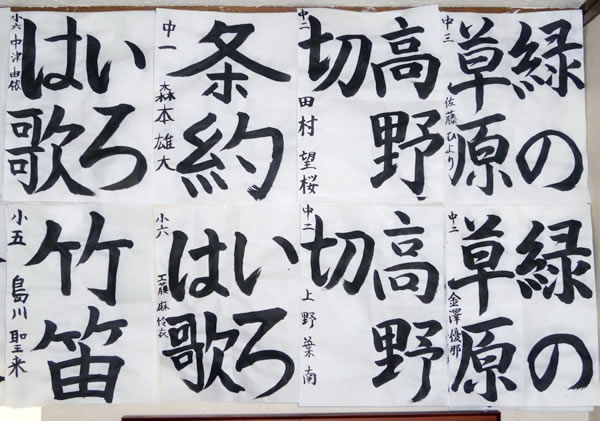 緑の
草原
中三 佐藤ひより
高野
切
中二 田村 望桜
条約
中一 森本雄大
いろ
は歌
小六 中津由依
緑の
草原
中二 金澤優那
高野
切
中二 上野葉南
いろ
は歌
小六 工藤麻
竹笛
小五 島川聖来